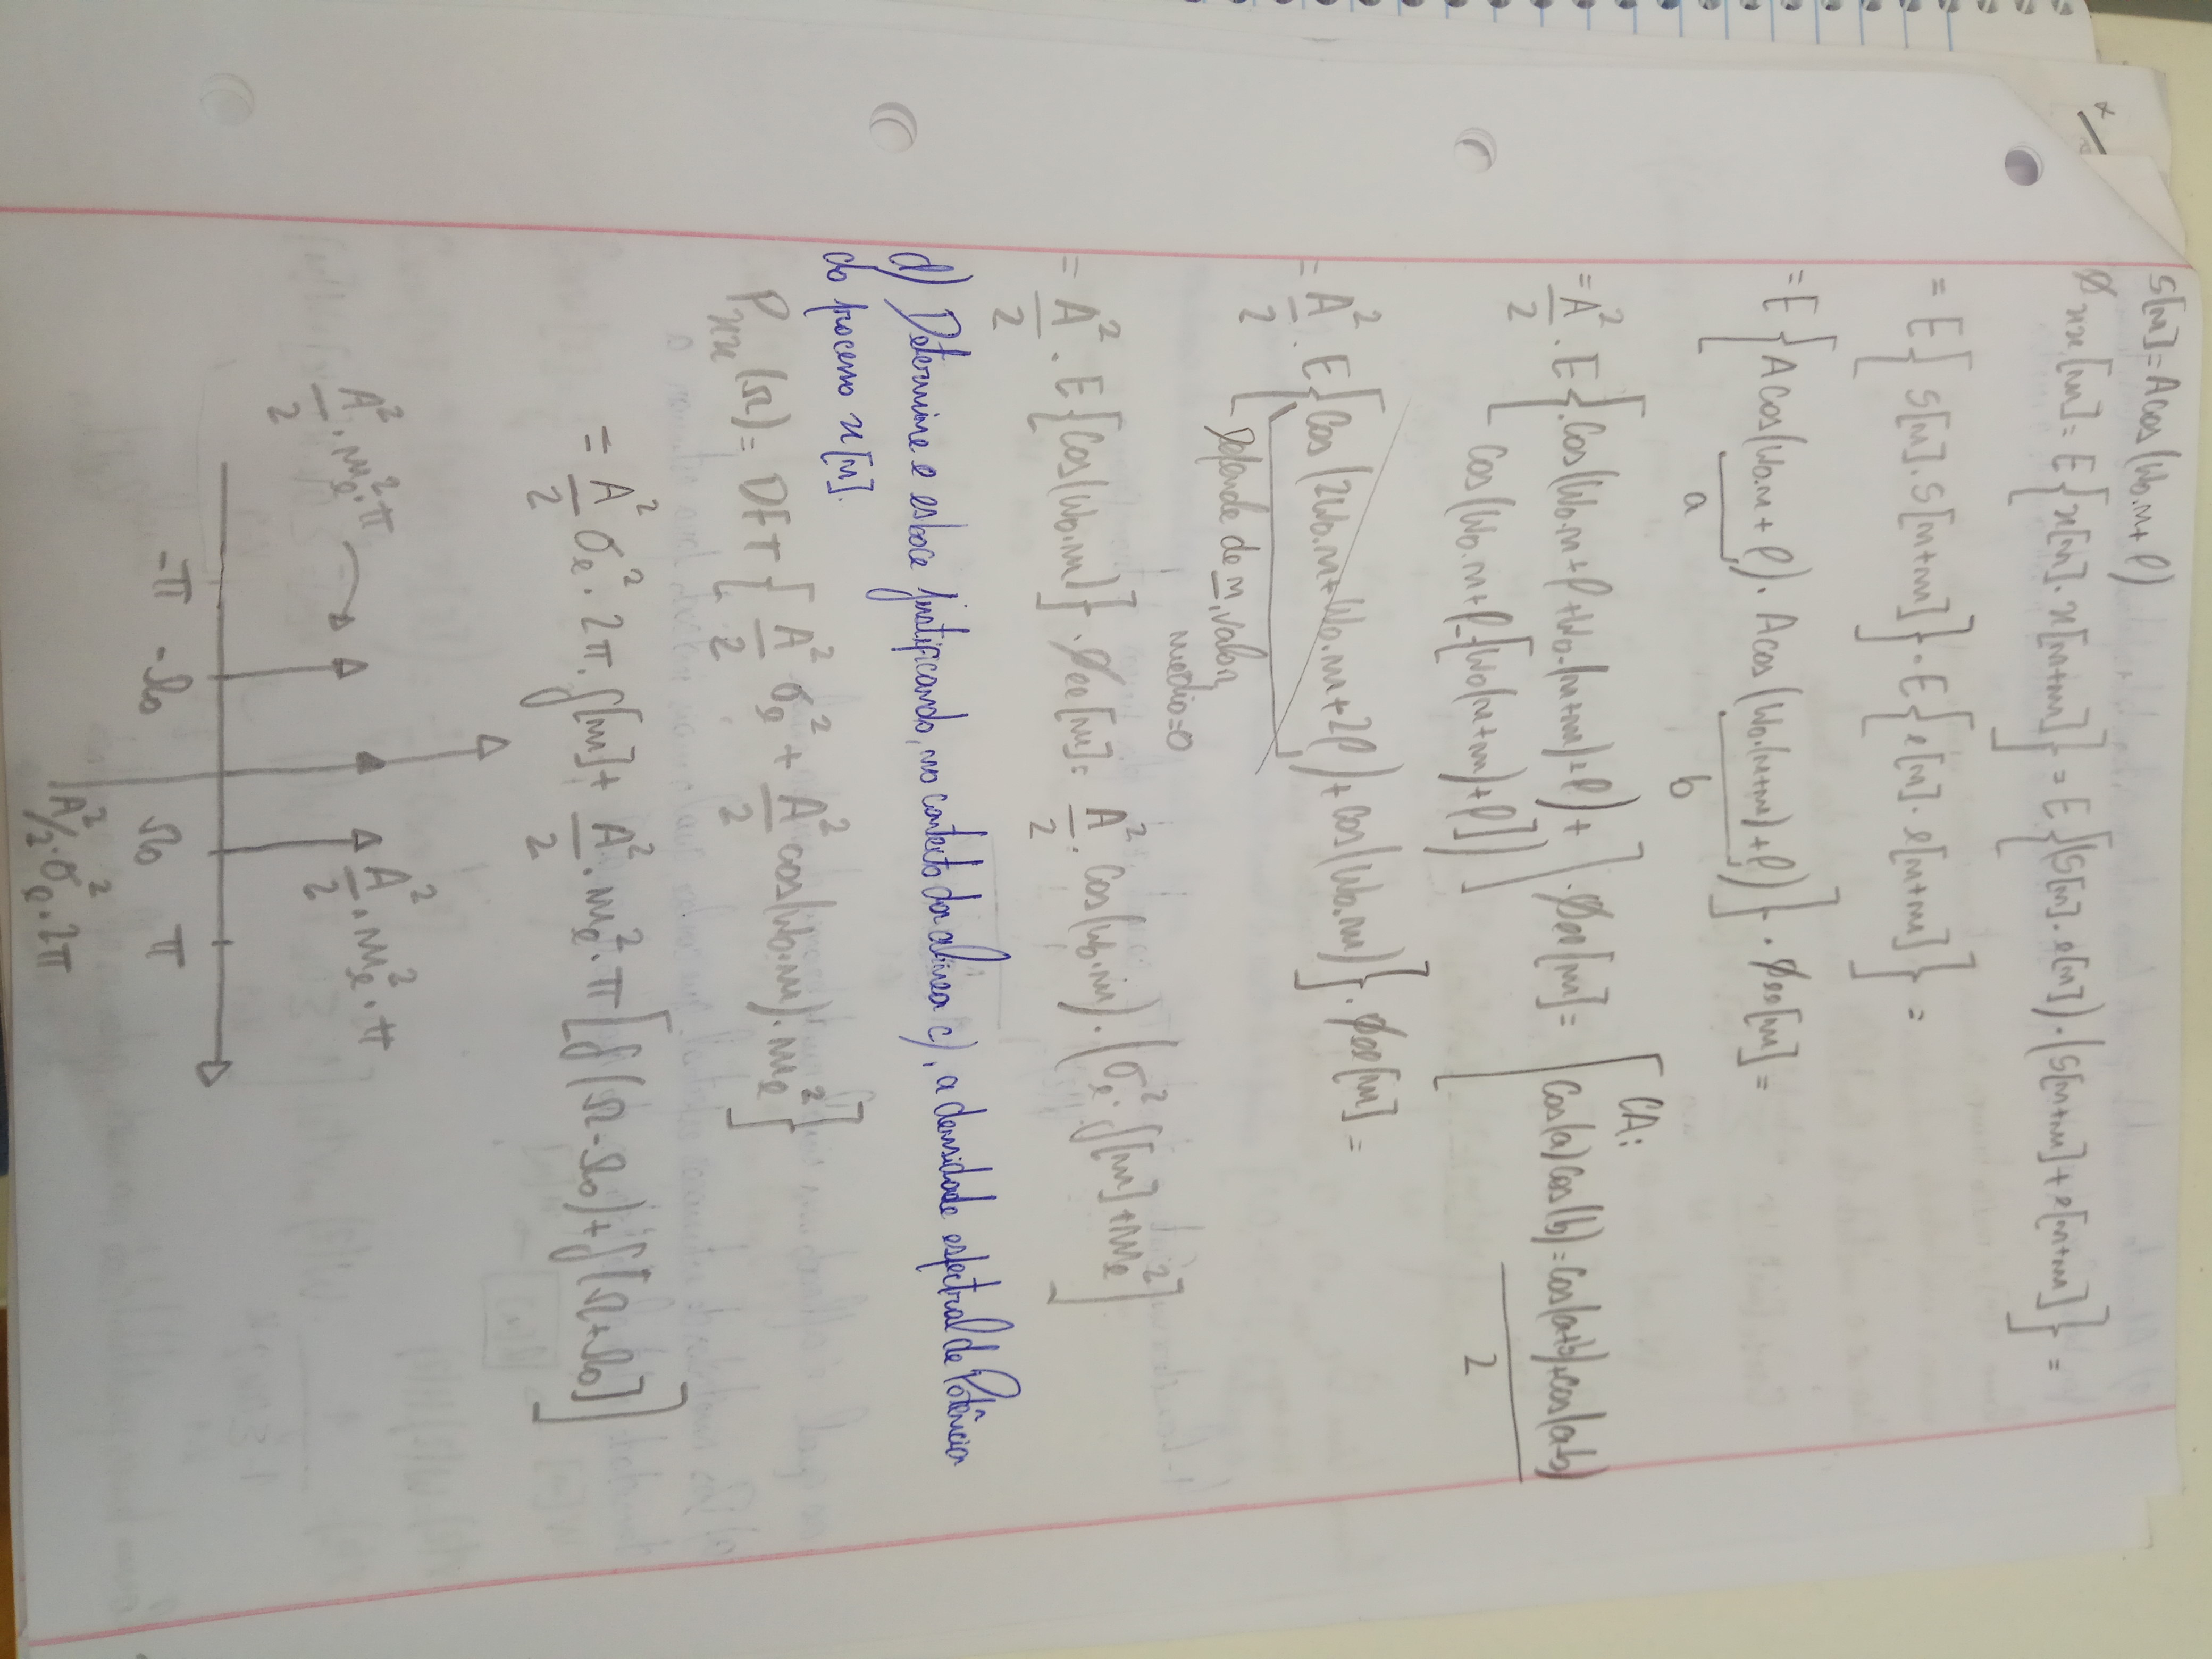 S[n]=Acos(W0.n+φ)
Øxx[m]=E{x[n].x[n+m]}=E{(S[n].e[n]).(S[n+m]+e[n+m])}=
=E{S[n].S[n+m]}.E{e[n].e[n+m]}=
=E{Acos(W0.n+φ).Acos(W0.(n+m)+φ)}.Øee[m]=
a b
=A²/2.E{cos(W0.n+φ+W0.(n+m)+φ)+
cos(W0.n+φ-[W0(n+m)+φ])}.Øee[m]=
CA:
Cos(a)cos(b)=cos(a+b)+cos(a-b)/2
=A²/2.E{cos(2W0.n+W0.m+2φ)+cos(W0.m)}.Øee[m]=
Depende de n, valor
medio=0
=A²/2.E{cos(W0.m)}.Øee[m]=A²/2.cos(W0.m).(σe².δ[m]+me²]
d) Determine e esboce justificando, no contexto da alinea c), a densidade espectral de Potência
do processo x[n].
Pxx(Ω)=DFT{A²/2 σe²+A²/2 cos(W0.m).me²}
=A²/2 σe².2π.δ[m]+A²/2.me².π[δ(Ω-Ω0)+δ[Ω+Ω0]]
A²/2.me².π
A²/2.me².π
-π -Ω0 Ω0 π
A²/2.σe².2π